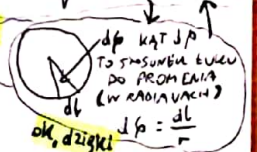 dφ KĄT dφ
TO STOSUNEK ŁUKU
DO PROMIENIA
(W RADIANACH)
dl
ok, dzięki dφ = dl/r